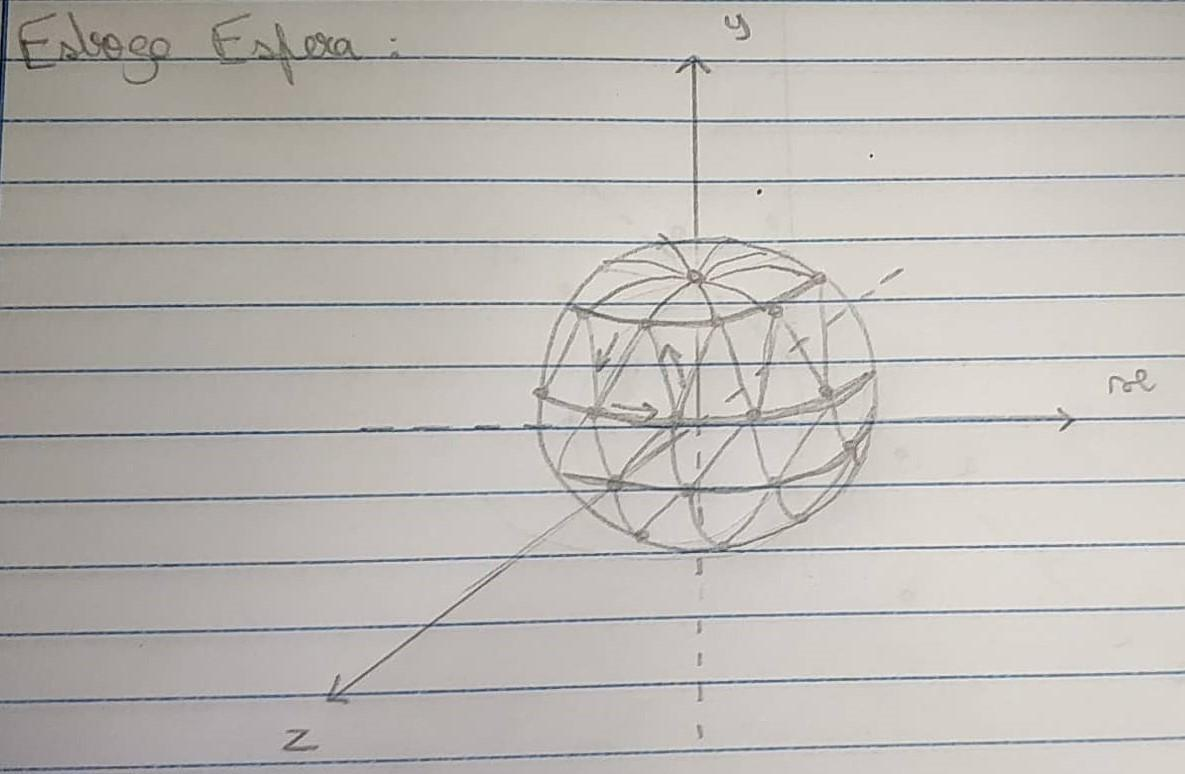 Esboço Esfera :
y
x
z